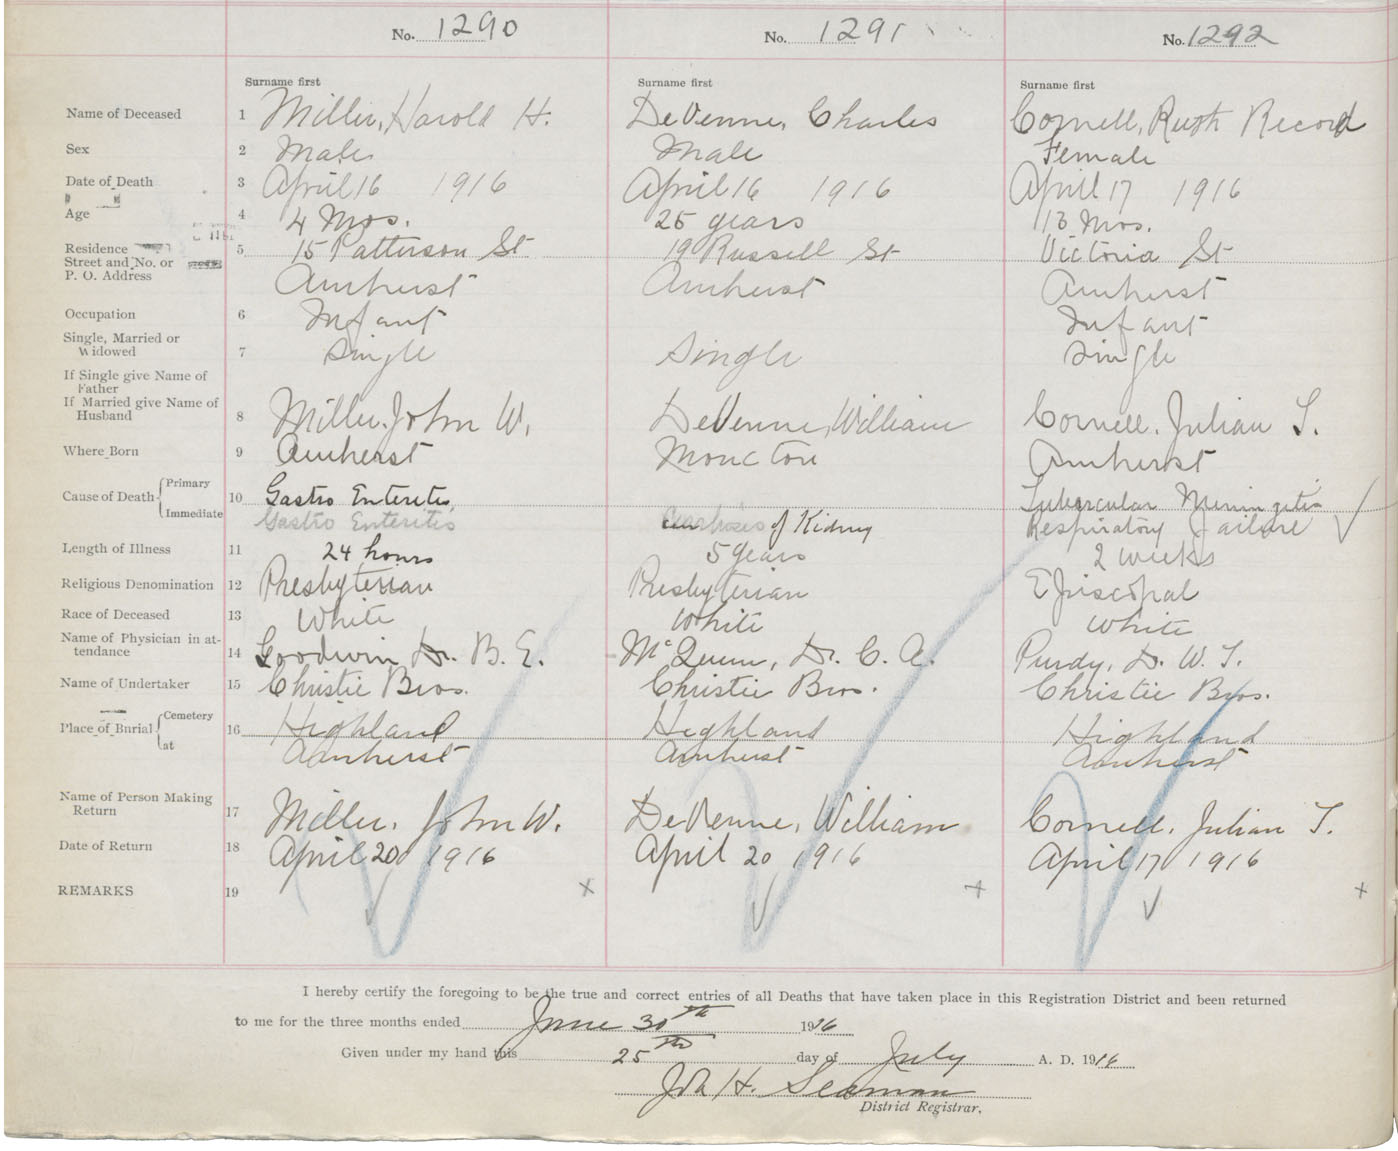 No. 1290 No. 1291 No. 1292
Surname first Surname first Surname first
Name of Deceased 1 Miller, Harold H. DeVenne, Charles Cornell, Ruth Record
Sex 2 Male Male Female
Date of Death 3 April 16 1916 April 16 1916 April 17 1916
Age 4 4 Mos. 25 years 13 Mos.
Residence 5 15 Patterson St 19 Russell St Victoria St
Street and No. or
P. O. Address Amherst Amherst Amherst
Occupation 6 Infant Infant
Single, Married or
Widowed 7 Single Single Single
If Single give Name of
Father
If Married give Name of
Husband 8 Miller, John W. DeVenne, William Cornell, Julian T.
Where Born 9 Amherst Moncton Amherst
Cause of Death Primary 10 Gastro Enteritis Tubercular Meningitis
Immediate Gastro Enteritis of Kidney Respiratory Failure
Length of Illness 11 24 hours 5 years 2 weeks
Religious Denomination 12 Presbyterian Presbyterian Episcopal
Race of Deceased 13 White White White
Name of Physician in at-
tendance 14 Goodwin, Dr. B. E. McQueen, Dr. C. A. Purdy, Dr. W. T.
Name of Undertaker 15 Christie Bros. Christie Bros. Christie Bros.
Place of Burial Cemetery 16 Highland Highland Highland
at Amherst Amherst Amherst
Name of Person Making
Return 17 Miller, John W. DeVenne, William Cornell, Julian T.
Date of Return 18 April 20 1916 April 20 1916 April 17 1916
REMARKS 19 x + x
I hereby certify the foregoing to be the true and correct entries of all Deaths that have taken place in this Registration District and been returned
to me for the three months ended June 30th 1916
Given under my hand this 25th day of July A. D. 1916
H. Seaman
District Registrar.